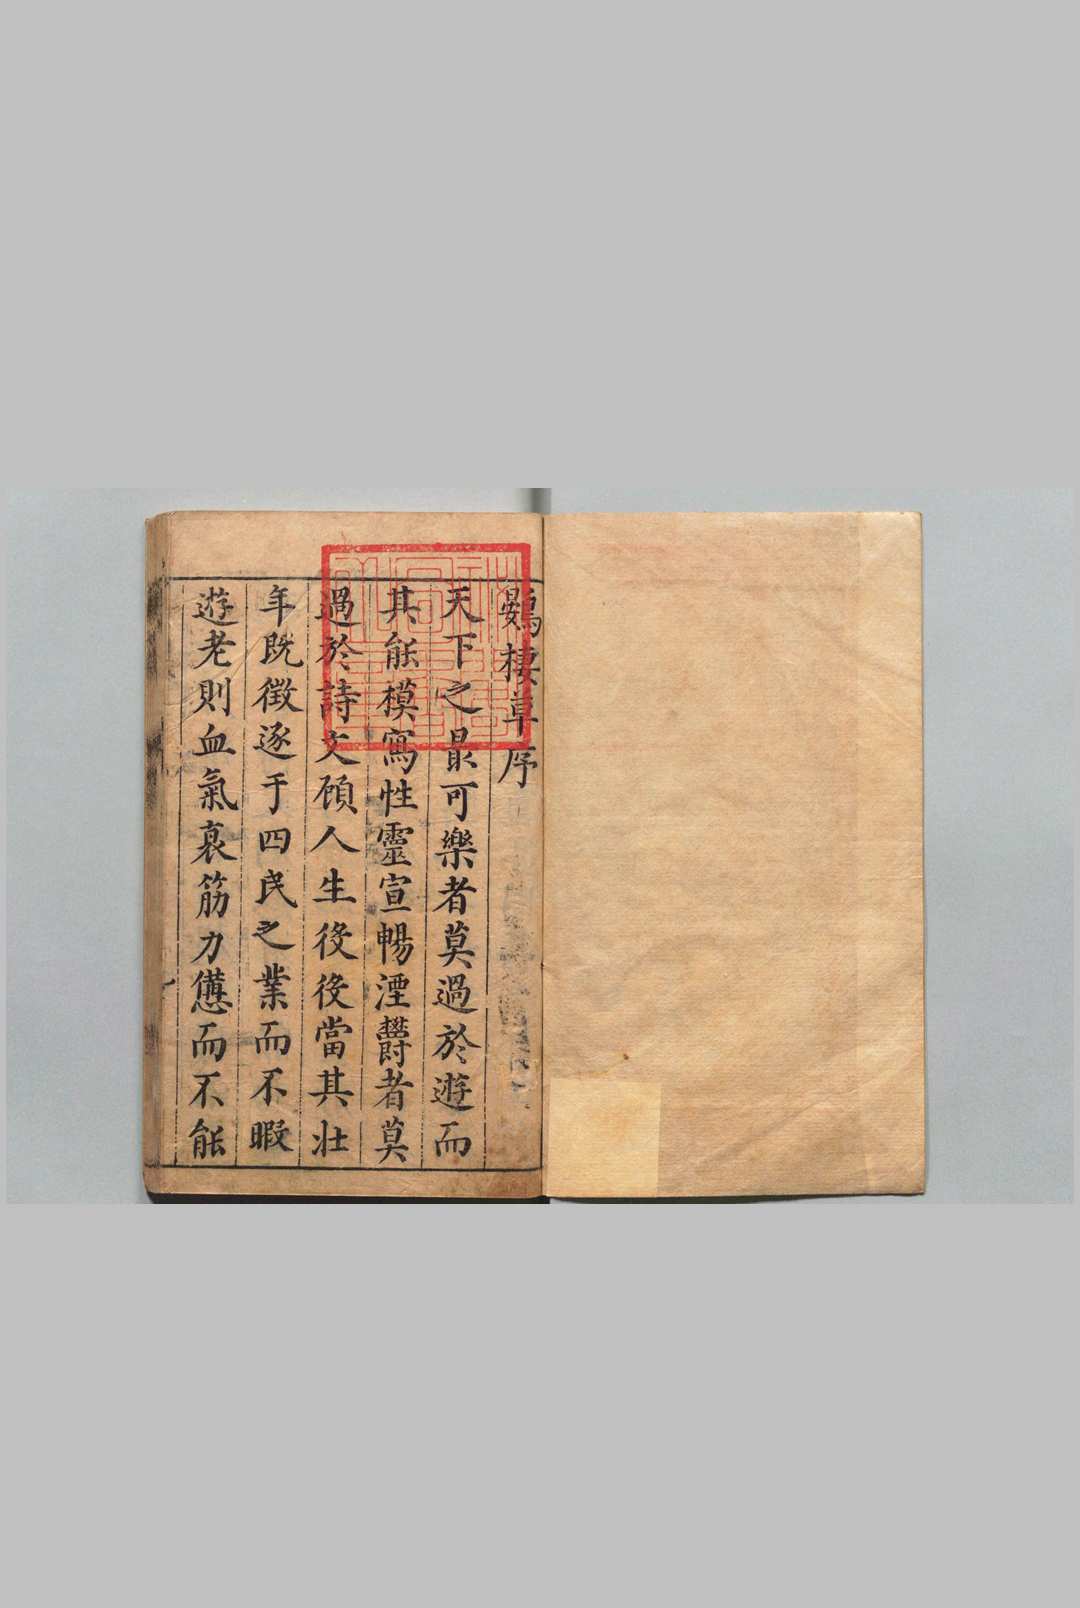 鷃棲草序
天下之最可樂者莫過於遊而
其能模寫性靈宣暢湮欝者莫
過於詩文顧人生役役當其壯
年既徵逐于四民之業而不暇
遊老則血氣衰筋力憊而不能